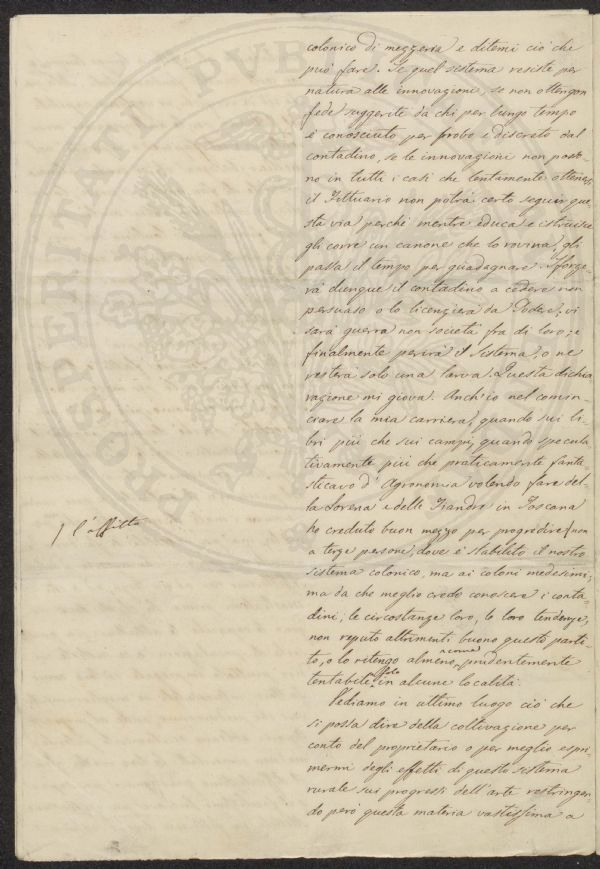 colonico di mezzeria e ditemi ciò che
può fare. Se quel sistema resiste per
natura alle innovazioni, se non ottengon
fede suggerite da chi per lungo tempo
è conosciuto per probo e discreto dal
contadino, se le innovazioni non posso-
no in tutti i casi che lentamente ottenersi,
il Fittuario non potrà certo seguir que-
sta via perché mentre educa e istruisce
gli corre un canone che lo rovina, gli
passa il tempo per guadagnare. Sforze-
rà dunque il contadino a cedere non
persuaso o lo licenzierà da Podere, vi
sarà guerra non società fra di loro; e
finalmente perirà il Sistema, o ne
resterà solo una larva. Questa dichia
razione mi giova. Anch'io nel comin-
ciare la mia carriera, quando sui li-
bri più che sui campi, quando specula-
tivamente più che praticamente fanta-
sticavo d'Agronomia volendo fare del-
la Lorena e delle Fiandre in Toscana
ho creduto buon mezzo per progredire ſ non
ſ l'affitto
a terze persone, dove è stabilito il nostro
sistema colonico, ma ai coloni medesimi;
ma da che meglio credo conoscere i conta-
dini, le circostanze loro, le loro tendenze,
non reputo altrimenti buono questo parti-
to, o lo ritengo almeno prudentemente
tentabile solo in alcune località.
Vediamo in ultimo luogo ciò che
si possa dire della coltivazione per
conto del proprietario o per meglio espri-
mermi degli effetti di questo sistema
rurale sui progressi dell'arte restringen-
do però questa materia vastissima a
PROSPERITATI PVB